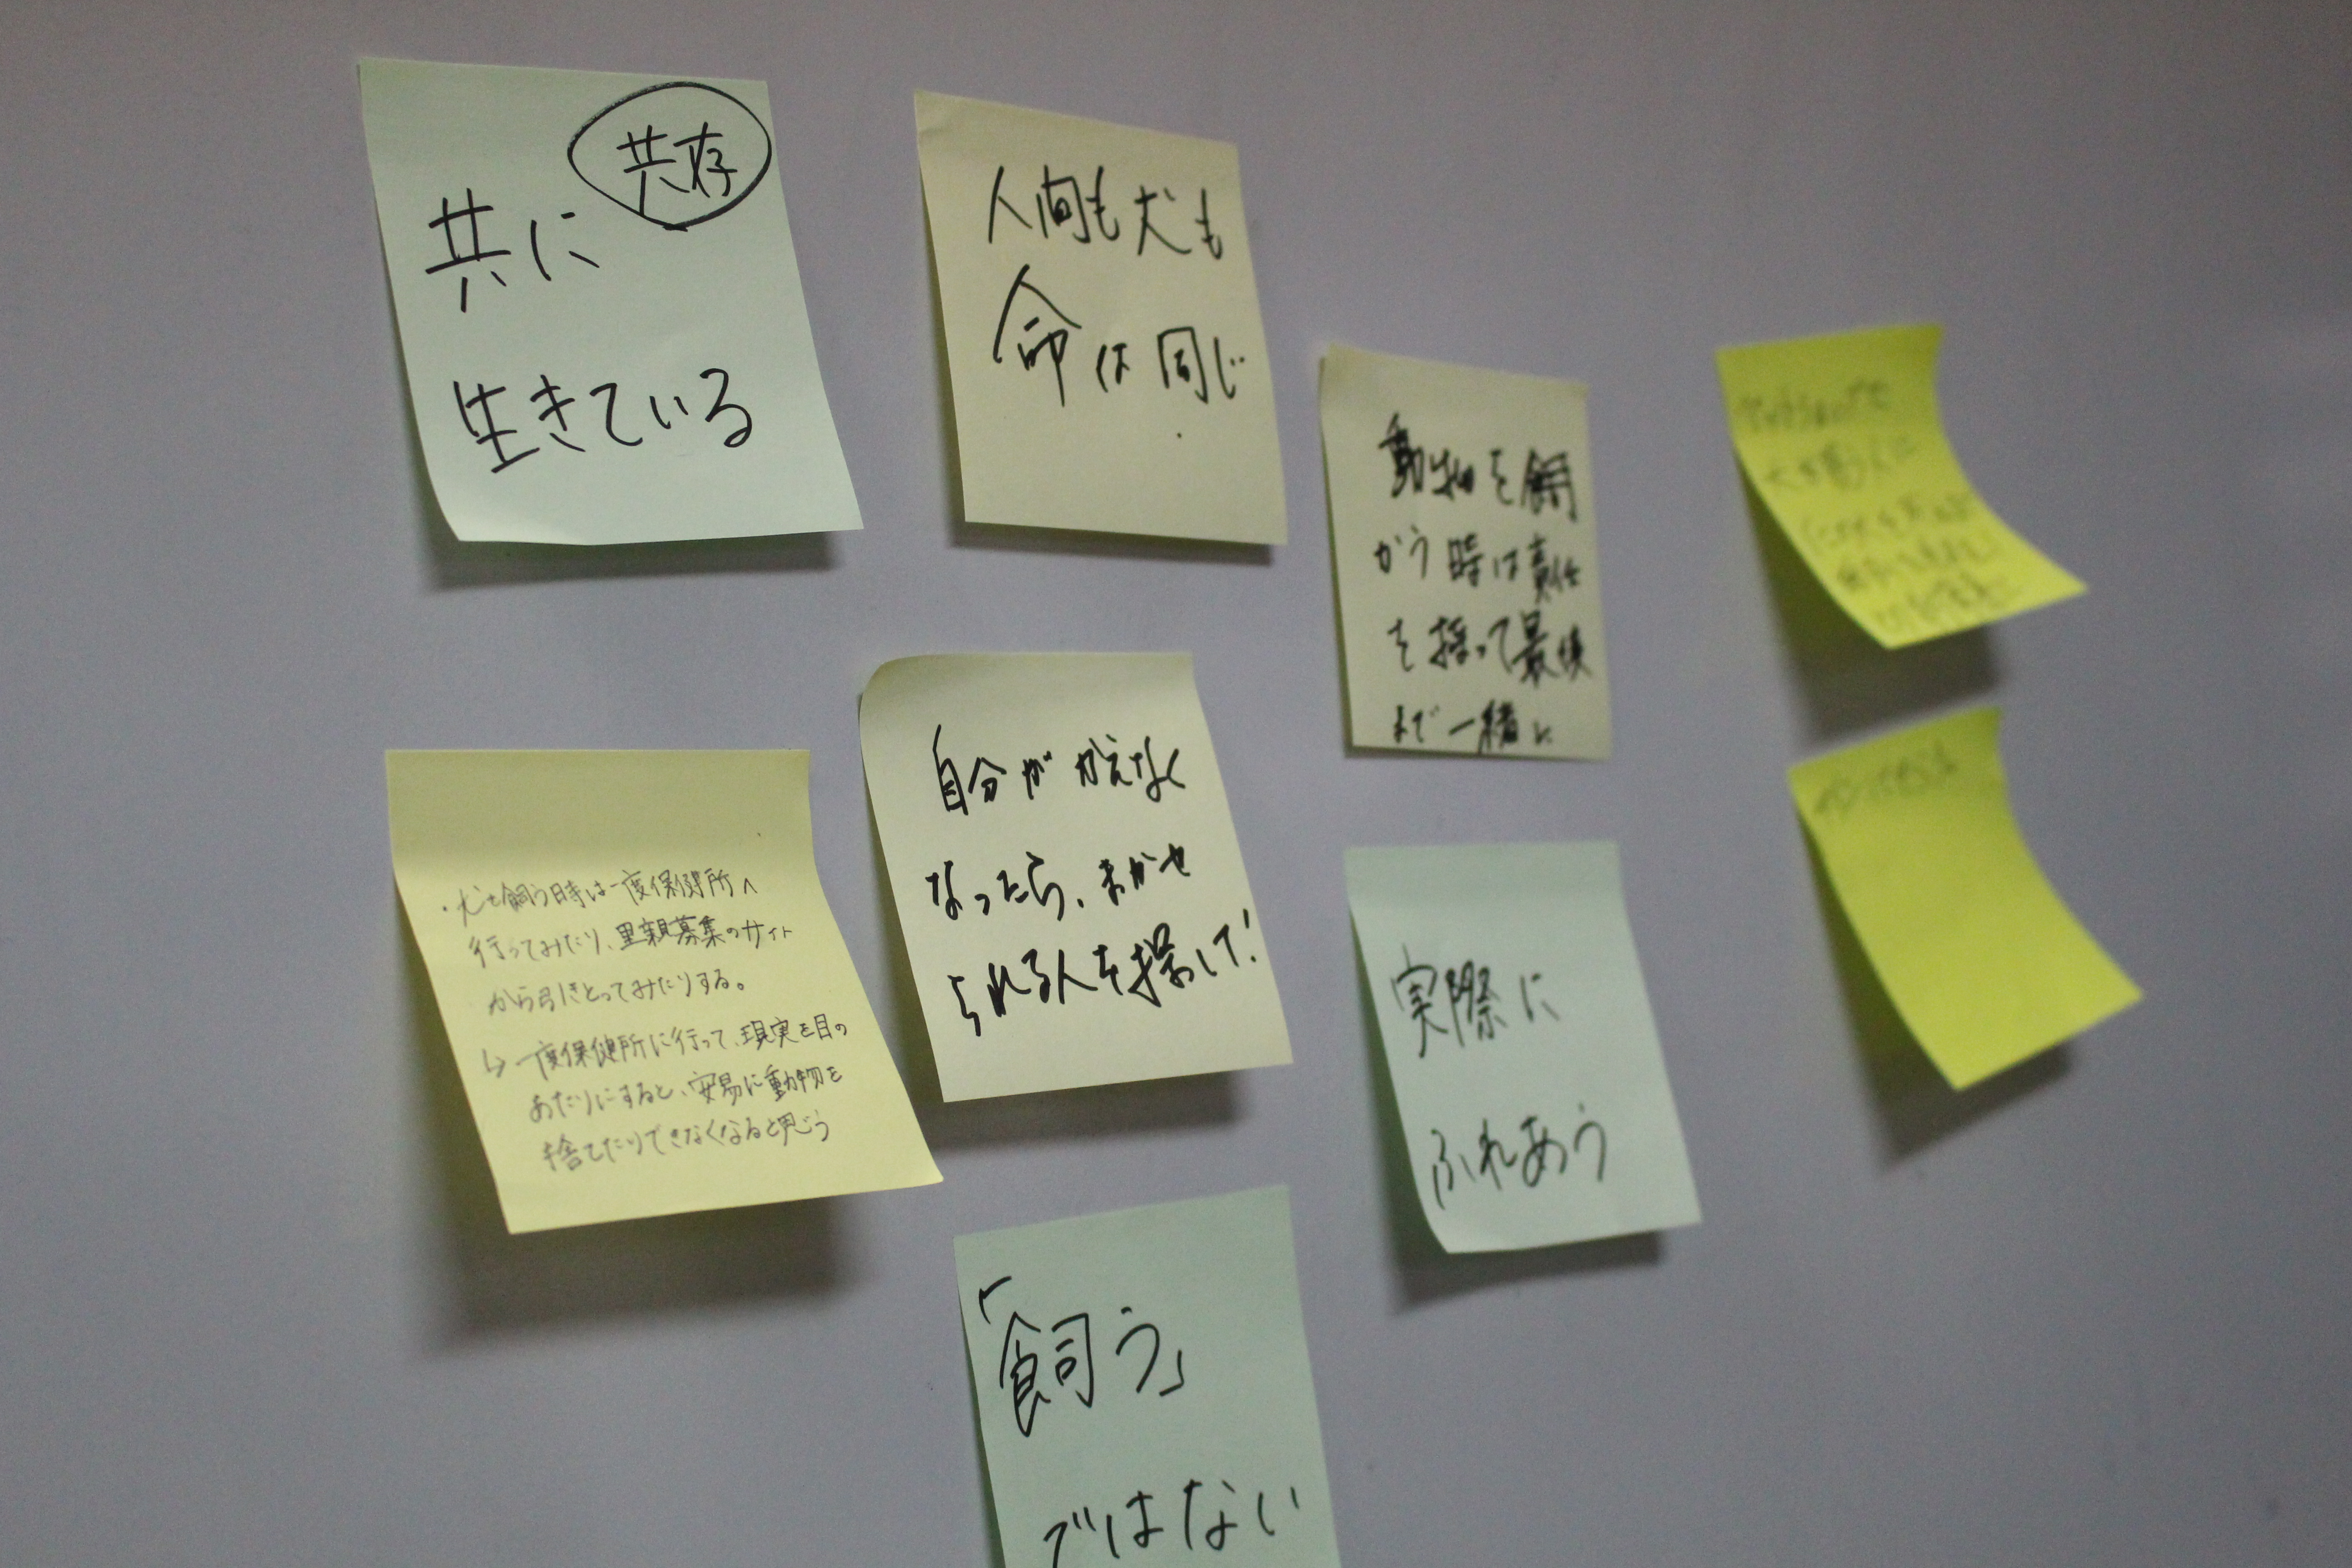 共存
共に
生きている
人間も犬も
命は同じ
動物を飼
かう時は責任
を持って最後
まで一緒に
・犬を飼う時は一度保健所へ
行ってみたり、里親募集のサイト
から引きとってみたりする。
↳一度保健所に行って、現実を目の
あたりにすると、安易に動物を
捨てたりできなくなると思う
自分がかえなく
なったら、まかせ
られる人を探して!
実際に
ふれあう
「飼う」
ではない